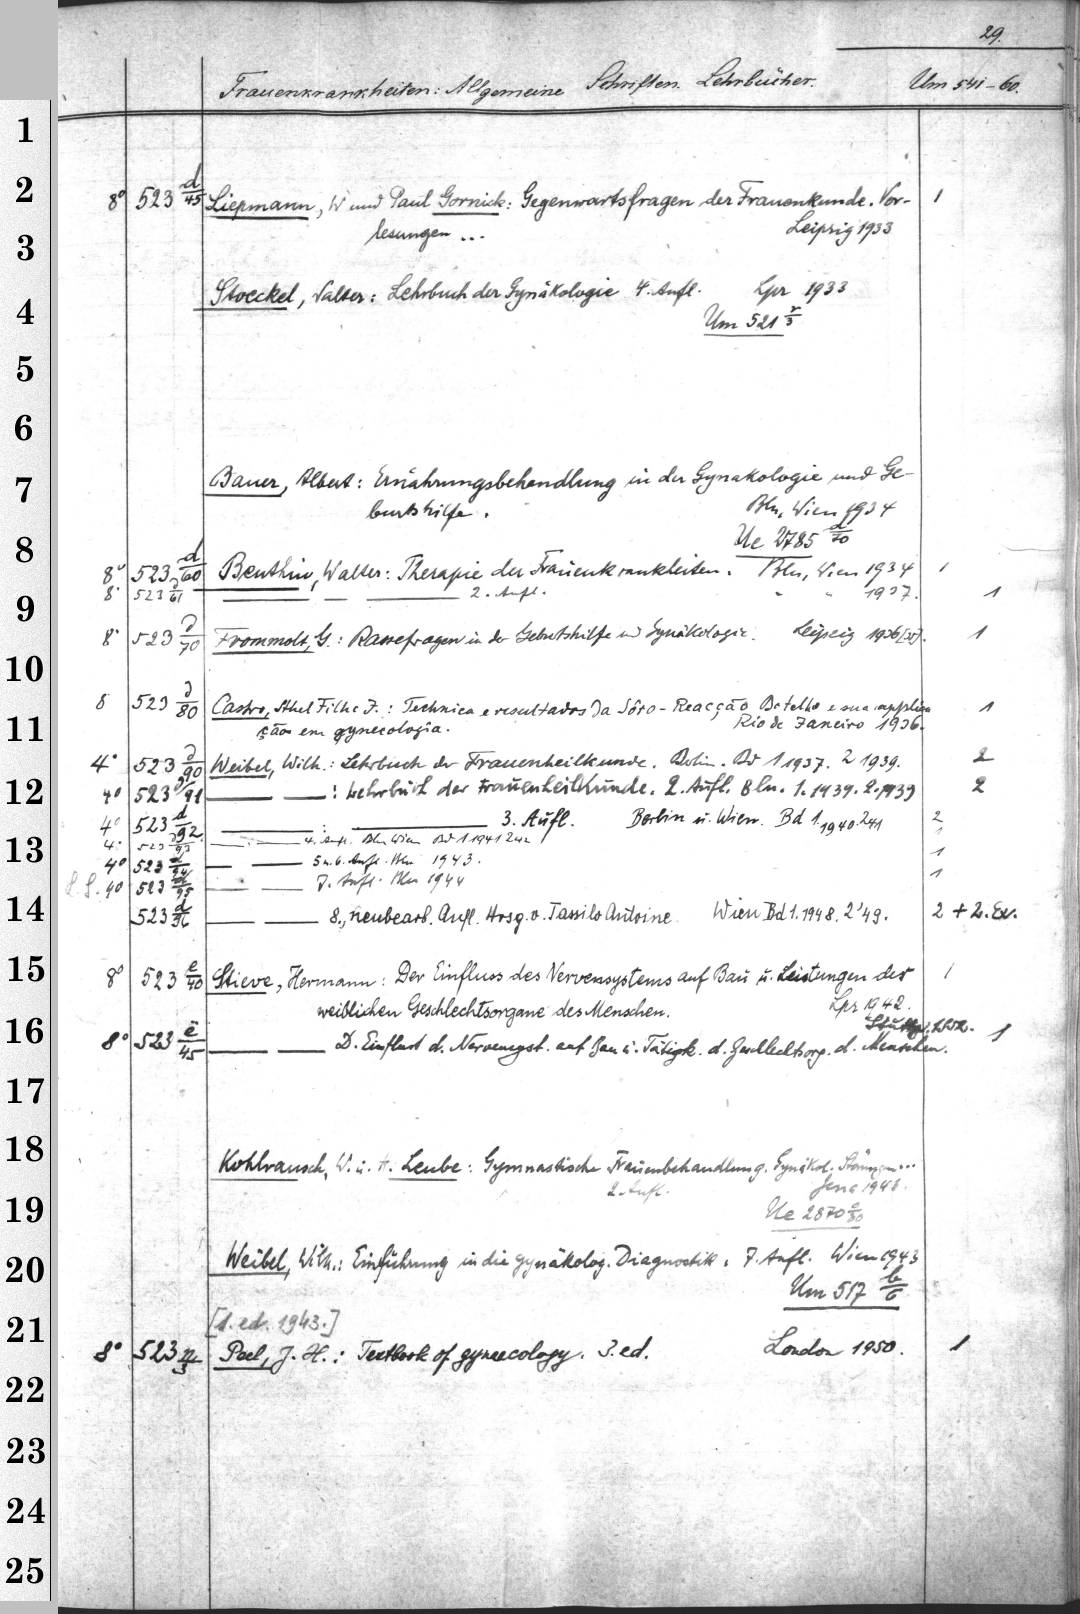 29.
Frauenkrankheiten: Allgemeine Schriften. Lehrbücher. Um 541-60.
1
2 8° 523 d/45 Liepmann, W und Paul Gornick: Gegenwartsfragen der Frauenkunde. Vor- 1
lesungen ... Leipzig 1933
3
Stoeckel, Walter: Lehrbuch der Gynäkologie 4. Aufl. Lpz 1933
4 Um 521 r/3
5
6
7 Bauer, Albert: Ernährungsbehandlung in der Gynäkologie und Ge-
burtshilfe. Bln, Wien 1934
8 Ue 2785 d/70
8° 523 d/60 Benthin, Walter: Therapie der Frauenkrankheiten. Bln, Wien 1934 1
9 8° 523 d/61 — — — 2. Aufl. " " 1937. 1
8° 523 d/70 Frommolt, G.: Rassefragen in der Geburtshilfe und Gynäkologie. Leipzig 1936[35]. 1
10
8 523 d/80 Castro, Athel Filho J.: Technica e resultados da Sôro-Reacção Botelho e sua applica 1
11 ção em gynecologia. Rio de Janeiro 1936.
4° 523 d/90 Weibel, Wilh.: Lehrbuch der Frauenheilkunde. Berlin. Bd 1 1937. 2 1939. 2
12 4° 523 d/91 — — : Lehrbuch der Frauenheilkunde. 2. Aufl. Bln. 1. 1939. 2. 1939 2
4° 523 d/92 — : — 3. Aufl. Berlin u. Wien. Bd 1. 1940. 2 41 2
4° 523 d/93 — 4. Aufl. Bln Wien Bd 1 1941 1
13 4° 523 d/94 — — 5 u. 6. Aufl. Bln 1943. 1
4° 523 d/95 — — 7. Aufl. Bln 1944 1
14 523 d/96 — — 8., neubearb. Aufl. Hrsg. v. Tassilo Antoine. Wien Bd 1. 1948. 2 '49. 2 + 2. Ex.
15 8° 523 e/40 Stieve, Hermann: Der Einfluss des Nervensystems auf Bau u. Leistungen der 1
weiblichen Geschlechtsorgane des Menschen. Lpz 1942.
16 Stuttg. 1952.
8° 523 e/45 — — D. Einfluss d. Nervensyst. auf Bau u. Tätigk. d. Geschlechtsorg. d. Menschen. 1
17
18 Kohlrausch, W. u. H. Leube: Gymnastische Frauenbehandlung. Gynäkol. Störungen...
2. Aufl. Jena 1943.
19 Ue 2870 e/80
20 Weibel, Wilh.: Einführung in die gynäkolog. Diagnostik. 7. Aufl. Wien 1943
Um 517 b/6
21 [1. ed. 1943.]
8° 523 n/3 Peel, J. H.: Textbook of gynaecology. 3. ed. London 1950. 1
22
23
24
25